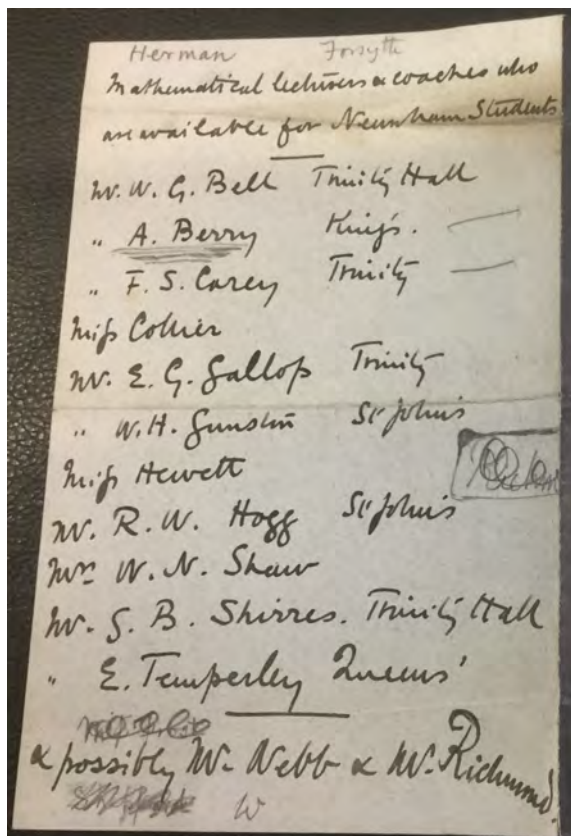 Herman Forsyth
Mathematical lecturers & coaches who
are available for Newnham Students
Mr. W. G. Bell Trinity Hall
" A. Berry King's.
" F. S. Carey Trinity
Miss Collier
Mr. E. G. Gallop Trinity
" W. H. Gunston St John's
Miss Hewett
Mr. R. W. Hogg St John's
Mrs W. N. Shaw
Mr. G. B. Shirres. Trinity Hall
" E. Temperley Queens'
& possibly Mr. Webb & Mr. Richmond.
W